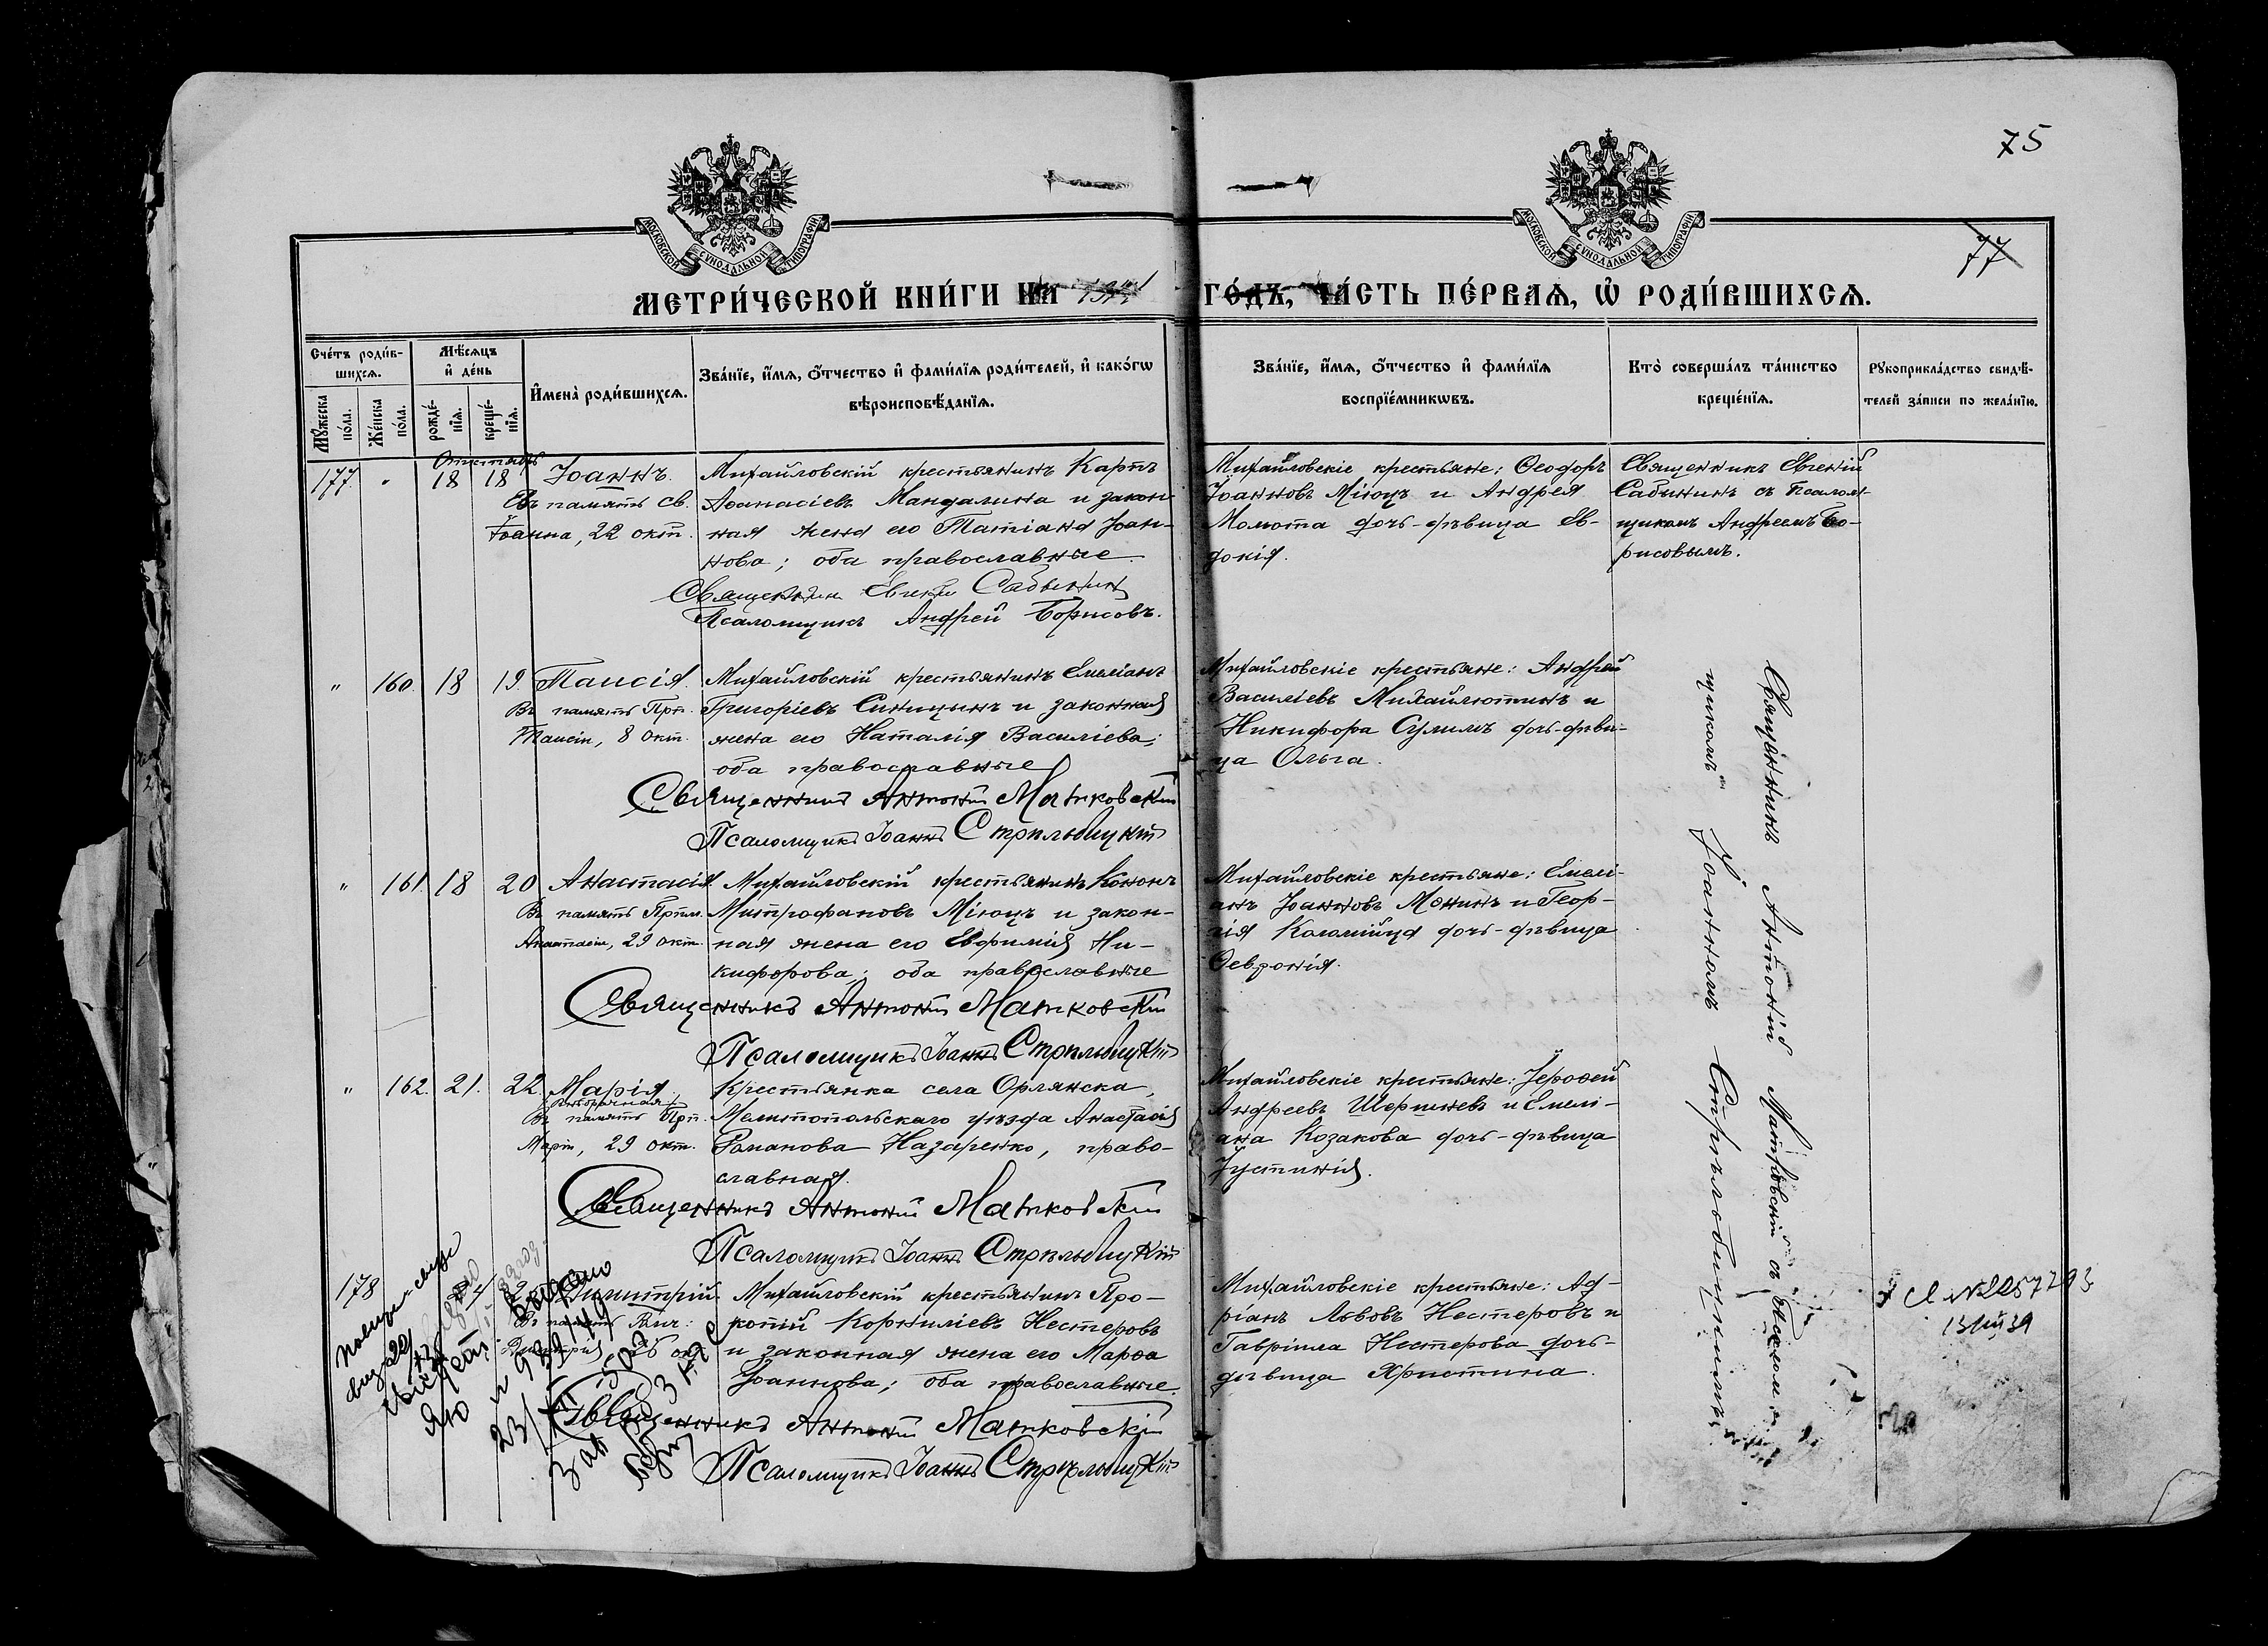 75
77
МОСКОВСКОЙ СѴНОДАЛЬНОЙ ТИПОГРАФІИ
МОСКОВСКОЙ СѴНОДАЛЬНОЙ ТИПОГРАФІИ
МЕТРИ́ЧЕСКОЙ КНИ́ГИ НА ГО́ДЪ, ЧА́СТЬ ПЕ́РВАѦ, Ѡ҆ РОДИ́ВШИХСѦ.
Сче́тъ роди́в-
шихсѧ.
Мѣ́сѧцъ
и҆ де́нь
И҆мена̀ роди́вшихсѧ.
Зва́нїе, и҆́мѧ, ѻ҆́тчество и҆ фами́лїѧ роди́телей, и҆ како́гѡ
вѣроисповѣ́данїѧ.
Зва́нїе, и҆́мѧ, ѻ҆́тчество и҆ фами́лїѧ
воспрїе́мникѡвъ.
Кто̀ соверша́лъ та́инство
креще́нїѧ.
Рꙋкоприкла́дство свидѣ́-
телей за́писи по жела́нїю.
Мꙋ́жеска
по́ла.
Же́нска
по́ла.
рожде́-
нїѧ.
креще́-
нїѧ.
Октябрь
177. " 18 18 Іоаннъ.
Въ память св.
Іоанна, 22 окт.
Михайловскій крестьянинъ Карпъ
Аѳанасіевъ Мандалина и закон-
ная жена его Татіана Іоан-
нова; оба православные.
Священник Евгений Сабынин
Псаломщикъ Андрей Борисовъ.
Михайловскіе крестьяне: Ѳеодоръ
Іоанновъ Міюцъ и Андрея
Молота дочь-дѣвица Ев-
докія.
Священникъ Евгеній
Сабининъ съ псалом-
щикомъ Андреемъ Бо-
рисовымъ.
" 160. 18 19. Таисія.
Въ память Прп.
Таисіи, 8 окт.
Михайловскій крестьянинъ Емеліанъ
Григоріевъ Синицынъ и законная
жена его Наталія Василіева;
оба православные
Священникъ Антоній Матковскій
Псаломщикъ Іоаннъ Стрѣльбицкій
Михайловскіе крестьяне: Андрей
Василіевъ Михайлютинъ и
Никифора Сулимъ дочь-дѣви-
ца Ольга.
Священникъ Антоній Матковскій съ псалом-
щикомъ Іоанномъ Стрѣльбицкимъ
" 161. 18 20 Анастасія.
Въ память Прпм.
Анастасіи, 29 окт.
Михайловскій крестьянинъ Кононъ
Митрофановъ Міюцъ и закон-
ная жена его Евфимія Ни-
кифорова; оба православные
Священникъ Антоній Матковскій
Псаломщикъ Іоаннъ Стрѣльбицкій
Михайловскіе крестьяне: Емелі-
анъ Іоанновъ Монинъ и Геор-
гія Коломійца дочь-дѣвица
Ѳевронія.
" 162. 21. 22. Марія.
Въ память Прп.
Маріи, 29 окт.
Крестьянка села Орлянска,
Мелитопольскаго уѣзда Анастасія
Романова Назаренко, право-
славная.
Священникъ Антоній Матковскій
Псаломщикъ Іоаннъ Стрѣльбицкій
Михайловскіе крестьяне: Іероѳей
Андреевъ Шершневъ и Емелі-
ана Козакова дочь-дѣвица
Іустинія.
178
Димитрій.
Михайловскій крестьянинъ Про-
копій Корниліевъ Нестеровъ
и законная жена его Марѳа
Іоаннова; оба православные.
Священникъ Антоній Матковскій
Псаломщикъ Іоаннъ Стрѣльбицкій
Михайловскіе крестьяне: Ад-
ріанъ Львовъ Нестеровъ и
Гавріила Нестерова дочь-
дѣвица Христина.